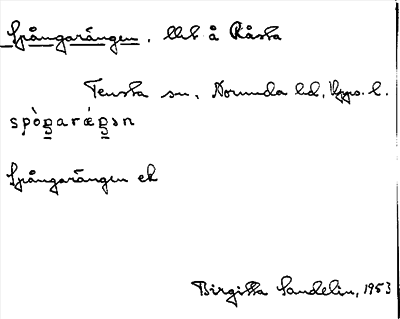 Spångarängen. Ult å Råsta
Tensta sn. Norunda hd, Upps. l.
spò̀ŋarǽŋən
Spångarängen ek
Birgitta Sandelin, 1953